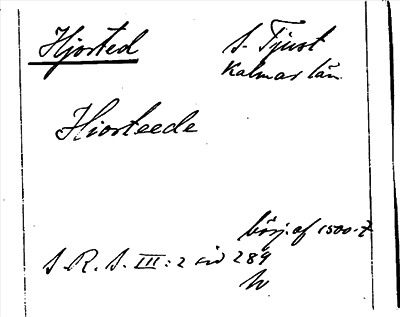 Hjorted
S. Tjust
Kalmar län.
Hiorteede
börj. af 1500-t
S. R. S. III: 2 sid 289